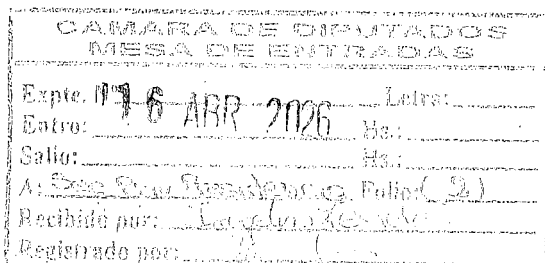 CAMARA DE DIPUTADOS
MESA DE ENTRADAS
Expte. Nº Letra:
16 ABR 2026
Entro: Hs.:
Salio: Hs.:
A: Folio: (2)
Recibido por:
Registrado por: